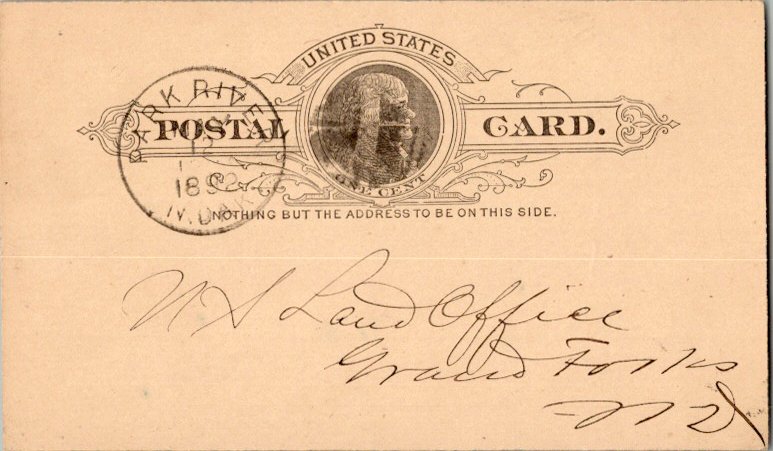 UNITED STATES
POSTAL CARD.
ONE CENT
NOTHING BUT THE ADDRESS TO BE ON THIS SIDE.
PARK RIVER
1892
N. DAK.
U S Land Office
Grand Forks
N D